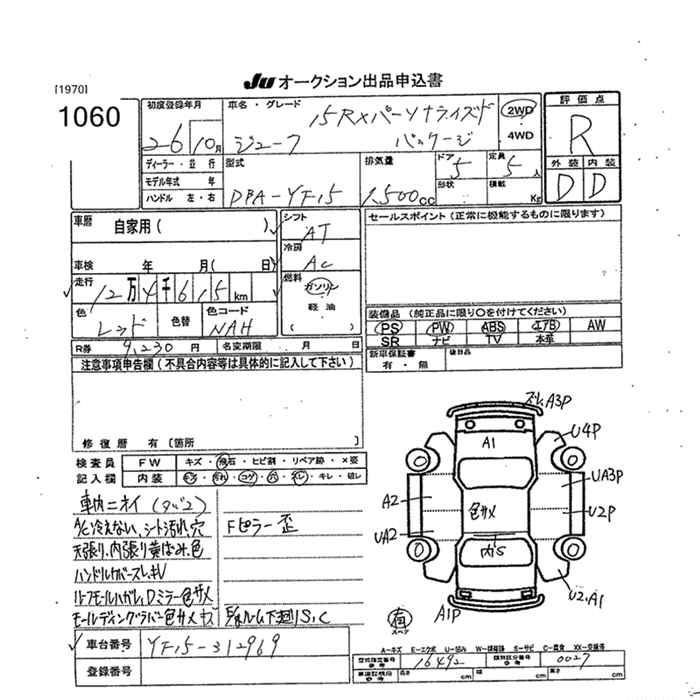 [1970]
JU オークション出品申込書
1060
初度登録年月
26 10月
車名・グレード
15RXパーソナライズド
ジューク パッケージ
2WD
4WD
評価点
R
外装 内装
D D
ディーラー・並行
モデル年式 年
ハンドル 左・右
型式
DBA-YF15
排気量
1,500cc
ドア 5
形状
定員 5人
積載 Kg
車歴
自家用( )
車検 年 月( 日)
走行
12万4千615km
色
レッド
色替
色コード
NAH
シフト
AT
冷房
AC
燃料
ガソリン
軽油
( )
セールスポイント(正常に機能するものに限ります)
装備品(純正品に限り○を付けてください)
PS PW ABS エアB AW
SR ナビ TV 本革
R券 9,230円
名変期限 月 日
新車保証書
有・無
後日品
注意事項申告欄(不具合内容等は具体的に記入して下さい)
修復歴 有 [箇所 ]
検査員 FW キズ・飛石・ヒビ割・リペア跡・X要
記入欄 内装 キズ・汚れ・コゲ・穴・スレ・キレ・切レ
車内ニオイ(タバコ)
A/C冷えない、シート汚れ、穴
天張り、内張り黄ばみ、色
ハンドルカバースレ、キレ
ルーフモールハガレ、Dミラー色サメ
モールディングラバー色サメ キズ
Fピラー歪
下廻りS、C
スレ、A3P
U4P
A1
UA3P
A2
U2P
色サメ
UA2
内S
U2、A1
A1P
有
スペア
車台番号 YF15-312969
登録番号
A-キズ E-エクボ U-凹み W-補修跡 S-サビ C-腐食 XX-交換済
型式指定番号 16492
類別区分番号 0027
長さ cm 幅 cm 高さ cm